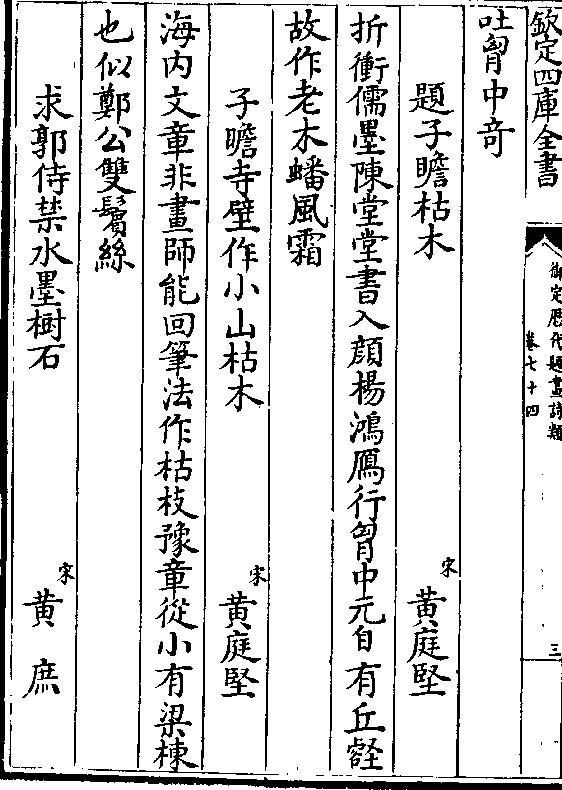 欽定四庫全書
御定歷代題畫詩類
卷七十四
三
吐胷中奇
題子瞻枯木
宋
黃庭堅
折衝儒墨陳堂堂書入顔楊鴻鴈行胷中元自有丘壑
故作老木蟠風霜
子瞻寺壁作小山枯木
宋
黃庭堅
海內文章非畫師能回筆法作枯枝豫章從小有梁棟
也似鄭公雙鬢絲
求郭侍禁水墨樹石
宋
黃庶